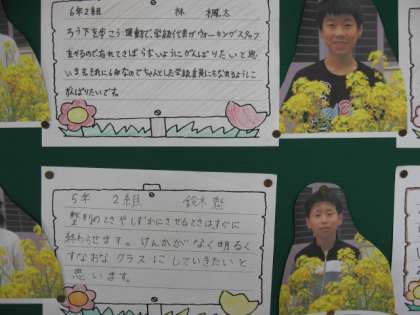 6年2組 林 楓太
ろう下を歩こう運動で、学級代表がウォーキングスタッフ
をやるので忘れてさぼらないようにがんばりたいと思
います。それに6年なのでちゃんとした学級委員にもなれるように
がんばりたいです。
5年 2組 鈴木 悠
整列のときやしずかにさせるときはすぐに
終わらせます。けんかがなく明るく
すなおなクラスにしていきたいと
思います。